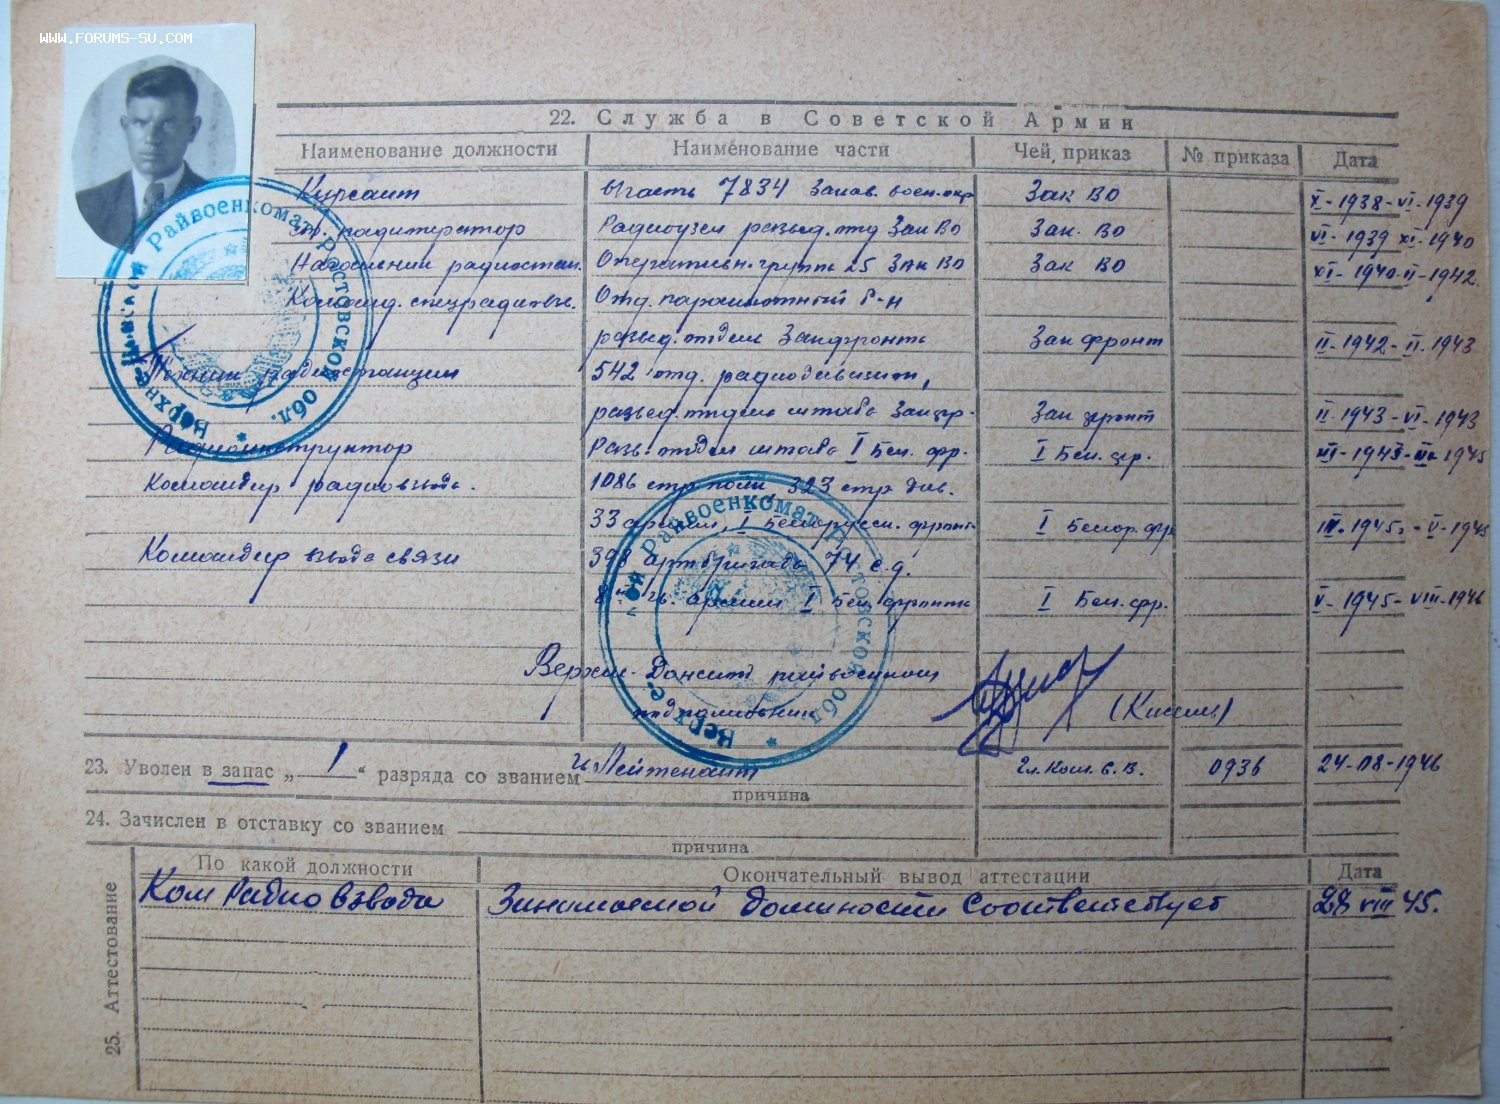 WWW.FORUMS-SU.COM
22. Служба в Советской Армии
Наименование должности Наименование части Чей приказ № приказа Дата
Курсант часть 7834 Закав. воен. окр Зак ВО X-1938-VI-1939
ст. радиотелеграф Радиоузел развед. отд ЗакВО Зак. ВО VI-1939 XI-1940
Начальник радиостан. Оперативн. группа 25 Зак ВО Зак ВО XI-1940-II-1942
Команд. спецрадиовзв. Отд. парашютный б-н
развед. отдела Закфронта Зак фронт II-1942-II-1943
Техник радиостанции 542 отд. радиодивизион,
развед. отдела штаба Закфр. Зак фронт II-1943-VI-1943
Радиоинструктор Разв. отдел штаба I Бел. фр. I Бел. фр.
Командир радиовзвода. 1086 стр полк, 323 стр див.
33 армии, I Белорусск. фронт I Белор. фр III-1945г-V-1945
Командир взвода связи артбригады 74 с.д.
8ой гв. армии I Бел. фронта I Бел. фр. V-1945-VIII-1946
Верхне-Донской райвоенком
подполковник
Верхне-Донской Райвоенкомат Ростовской обл.
Верхне-Донской Райвоенкомат Ростовской обл.
23. Уволен в запас „1“ разряда со званием Лейтенант Гл. Ком. С.В. 0936 24-08-1946
причина
24. Зачислен в отставку со званием
причина
25. Аттестование
По какой должности Окончательный вывод аттестации Дата
Ком Радио взвода Занимаемой должности Соответствует 28 VIII 45.